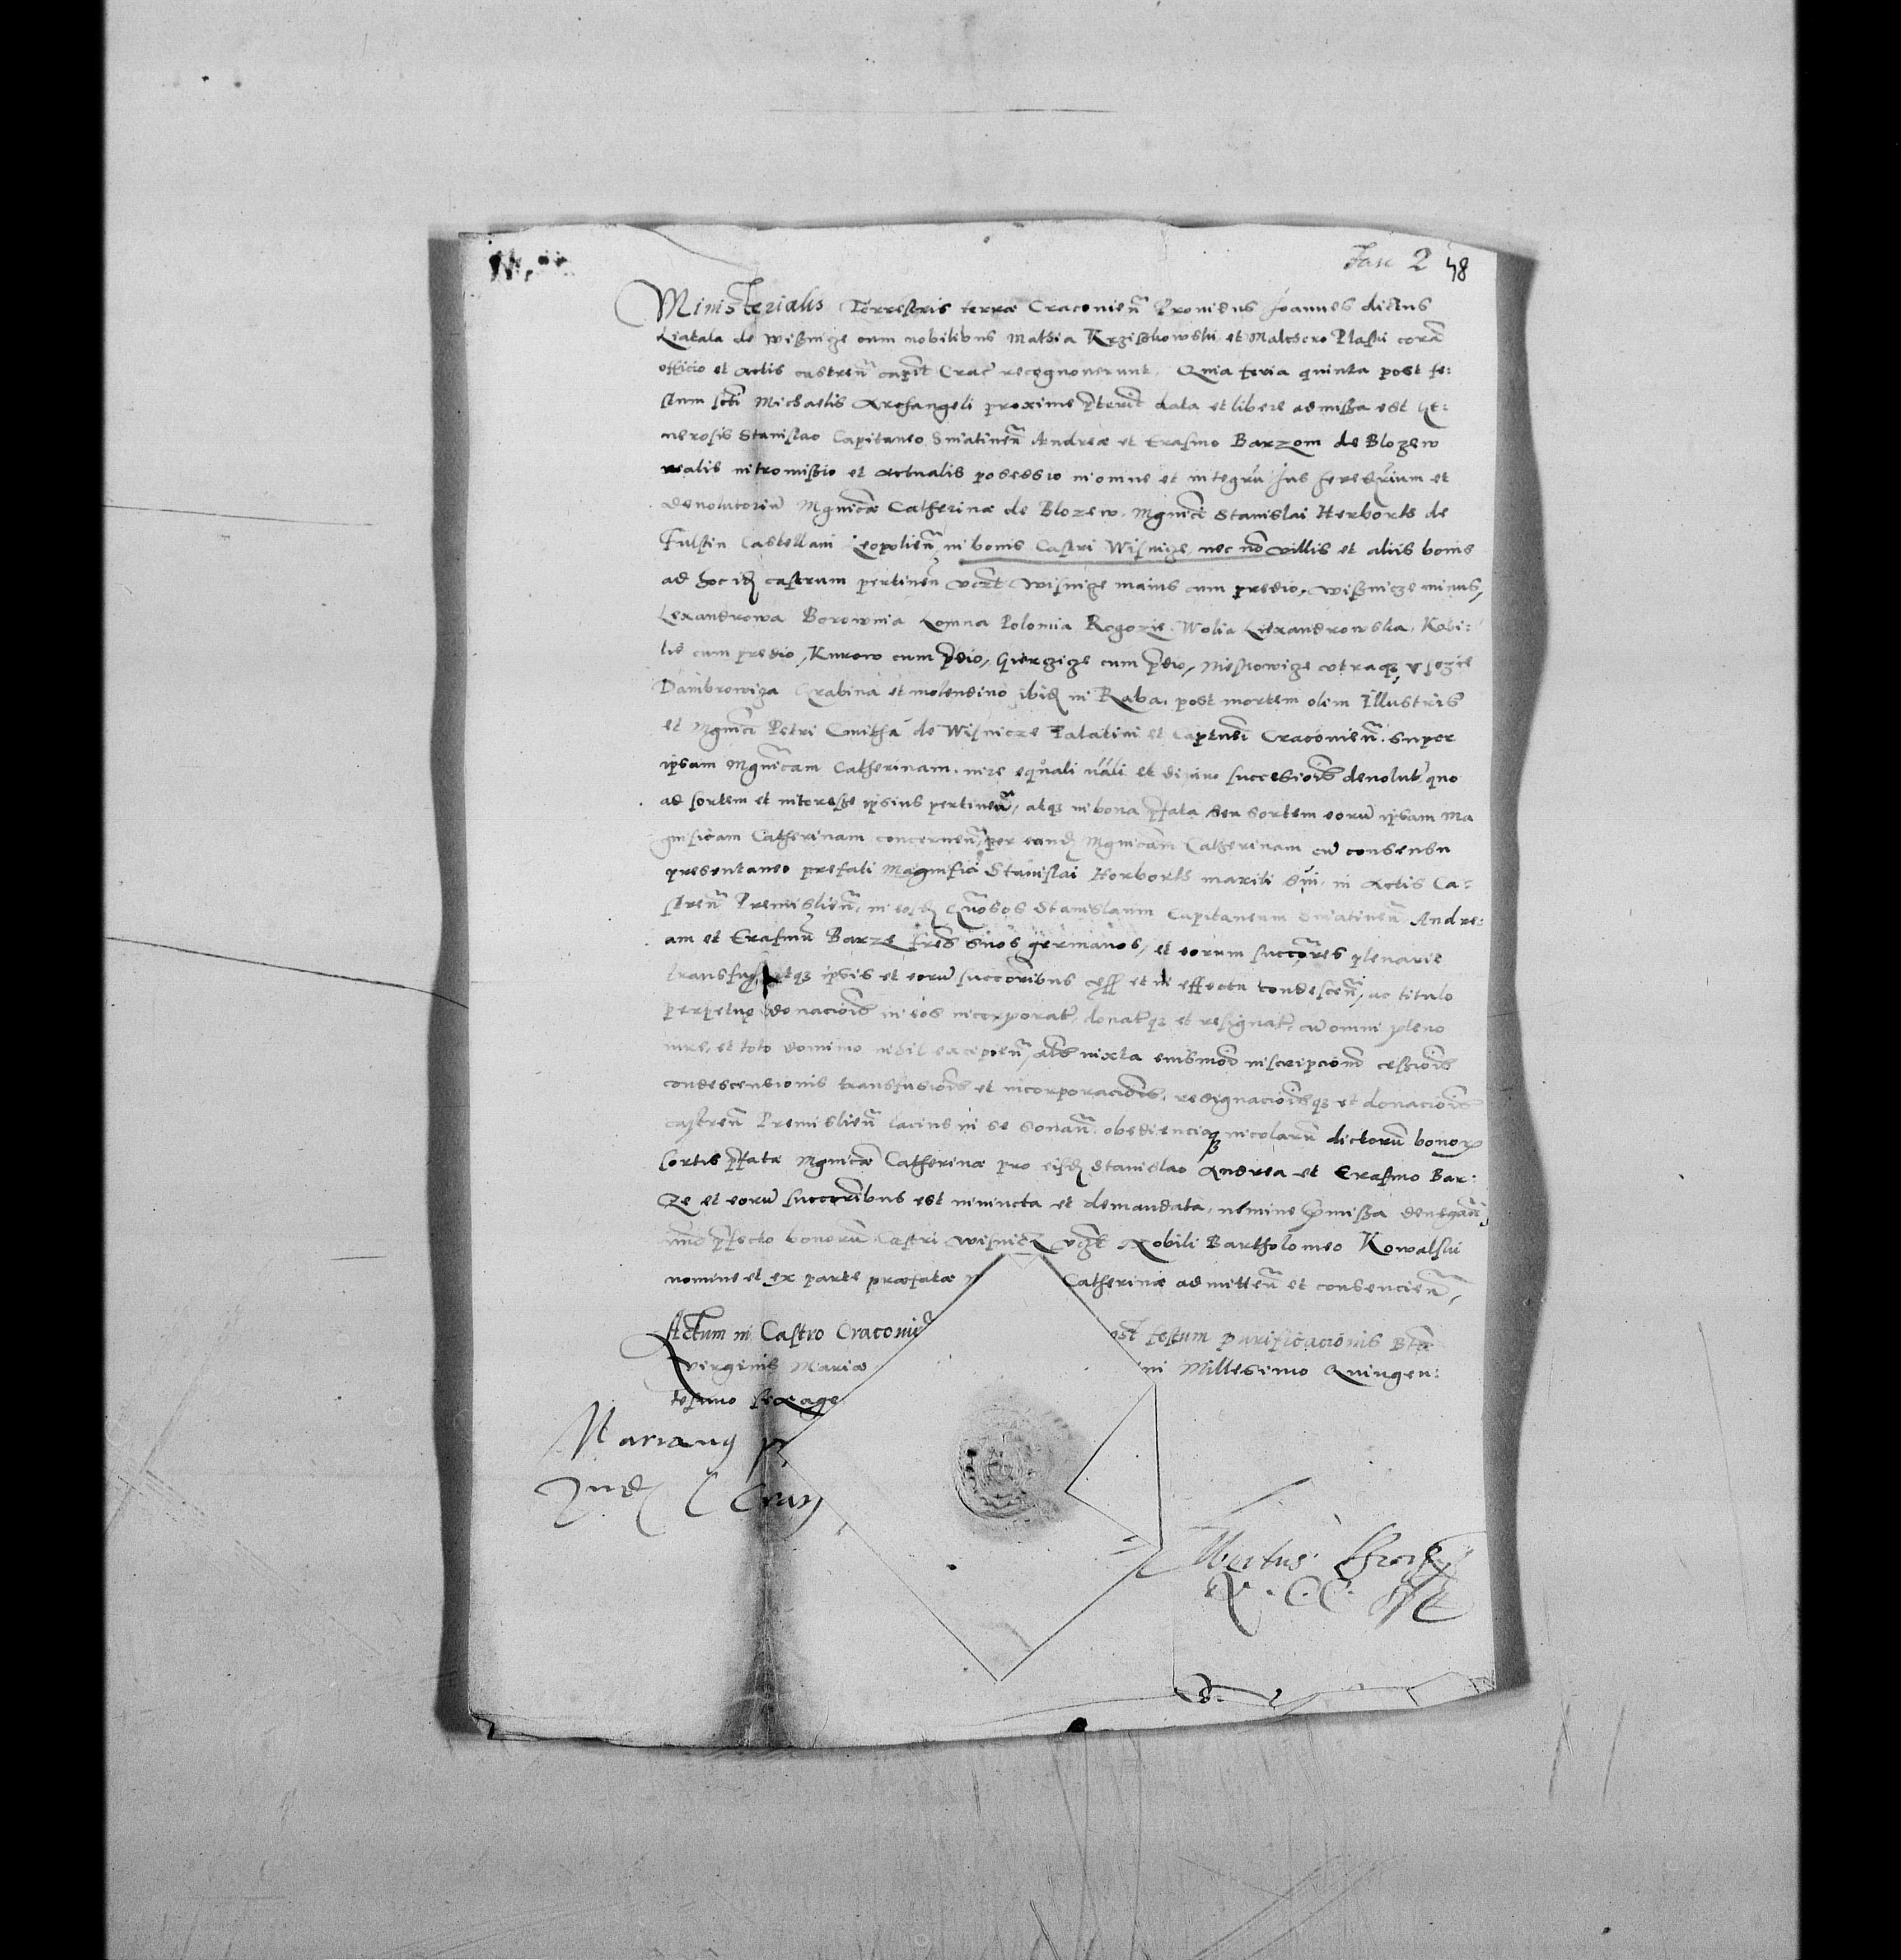 Fasc 2 48
Ministerialis Terrestris terræ Cracovien̄ Providus Joannes dictus
de Wisznicze cum nobilibus Mathia Krziskowski et Malchero Plaski corā
officio et Actis castren̄ capit Crac̄ recognoverunt. Quia feria quinta post fe:
stum scti Michaelis Archangeli proxime pterit data et libere admissa est Ge:
nerosis Stanislao Capitaneo Sniatinen̄ Andreæ et Erasmo Barzom de Blozew
realis intromissio et Actualis posessio in omne et integrū Jus hereditarium et
devolutoriū Mgnicæ Catherinæ de Blozew, Mgnici Stanislai Herborth de
Fulstin Castellani Leopolien̄ in bonis Castri Wisnicze, nec nō villis et aliis bonis
ad hoc idē castrum pertinen̄ vczt Wisnicze maius cum predio, Wisznicze minus,
Lexandrowa Borownia Lomna Polomia Rogozie Wolia Lexandrowska, Kobi:
lie cum predio, Kurow cum pdio, Gierzicze cum pdio, utraqz
Dambrowiza Grabina et molendino ibidē in Raba, post mortem olim Illustris
et Mgnici Petri Cmitha de Wisnicze Palatini et Captnei Cracovien̄. super
ipsam Mgnicam Catherinam, iure equali nāli et diviso successiois devolut̄ quo
ad sortem et interesse ipsius pertinen̄, atqz in bona pfata seu sortem eorū ipsam Ma
gnificam Catherinam concernen̄, per eandē Mgnicam Catherinam cū consensu
presentaneo prefati Magnifici Stanislai Herborth mariti sui, in Actis Ca:
stren̄ Premislien̄, in eosdē Gnosos Stanislaum Capitaneum Sniatinen̄ Andre:
am et Erasmū Barze fres suos germanos, et eorum succores plenarie
ipsis et eorū succoribus cess et in effectu condescen̄, ac titulo
perpetuæ donaciois in eos incorporat, donatqz et resignat, cū omni pleno
iure, et toto dominio nihil excipien̄, als iuxta eiusmodi inscripcionē cessiois
condescensionis transfusiois et incorporaciois, resignacioisqz et donaciois
castren̄ Premislien̄ lacius in se sonan̄. obedienciaqz incolarū dictorū bonorꝝ
sortis pfatæ Mgnicæ Catherinæ pro eisdē Stanislao Andrea et Erasmo Bar:
ze et eorū succoribus est iniuncta et demandata, nemine pmissa denegan̄,
pfecto bonorū Castri Wisnicz vczt Nobili Bartholomeo Kowalski
nomine et ex parte præfatæ Catherinæ admitten̄ et consencien̄,
Actum in Castro Cracovi ost festum purificacionis Btæ
virginis Mariæ ini Millesimo Quingen:
tesimo sexage
Marianus p
Jud C Crac
Albertus
V. C. C.